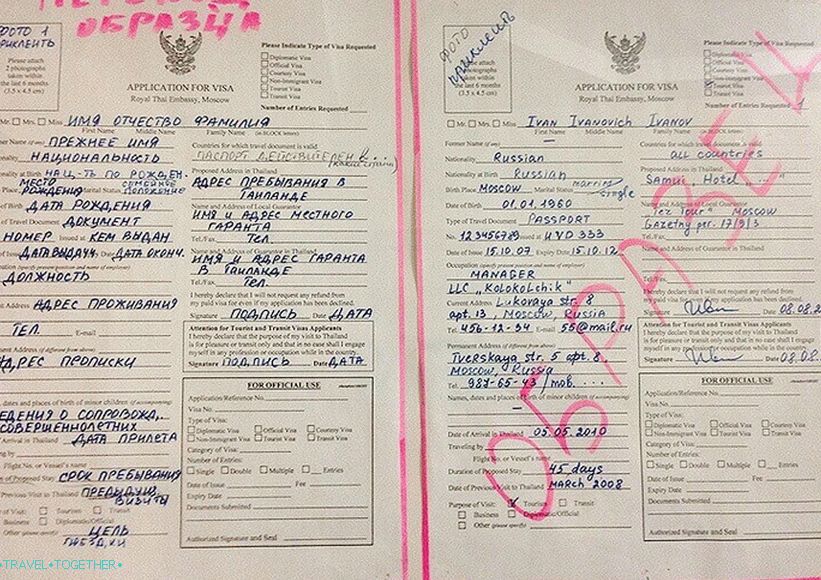 ПЕРЕВОД
ОБРАЗЦА
ФОТО 1
ПРИКЛЕИТЬ
Please attach
2 photographs
taken within
the last 6 months
(3.5 x 4.5 cm)
APPLICATION FOR VISA
Royal Thai Embassy, Moscow
Please Indicate Type of Visa Requested
Diplomatic Visa
Official Visa
Courtesy Visa
Non-Immigrant Visa
Tourist Visa
Transit Visa
Number of Entries Requested
Mr. Mrs. Miss ИМЯ ОТЧЕСТВО ФАМИЛИЯ
First Name Middle Name Family Name (in BLOCK letters)
Former Name (if any) ПРЕЖНЕЕ ИМЯ
Nationality НАЦИОНАЛЬНОСТЬ
Nationality at Birth НАЦ-ТЬ ПО РОЖДЕН.
МЕСТО РОЖДЕНИЯ СЕМЕЙНОЕ ПОЛОЖЕНИЕ
of Birth ДАТА РОЖДЕНИЯ
of Travel Document ДОКУМЕНТ
НОМЕР Issued at КЕМ ВЫДАН
ДАТА ВЫДАЧИ Date ДАТА ОКОНЧ.
Occupation (specify present position and name of employer)
ДОЛЖНОСТЬ
Address АДРЕС ПРОЖИВАНИЯ
ТЕЛ. E-mail
Permanent Address (if different from above)
АДРЕС ПРОПИСКИ
dates and places of birth of minor children (if accompanying)
СВЕДЕНИЯ О СОПРОВОЖД.
НЕСОВЕРШЕННОЛЕТНИХ
of Arrival in Thailand ДАТА ПРИЛЕТА
Traveling by
Flight No. or Vessel's name
of Proposed Stay СРОК ПРЕБЫВАНИЯ
Previous Visit to Thailand ПРЕДЫДУЩ. ВИЗИТЫ
of Visit: Tourism Transit
Business Diplomatic/Official
Other (please specify) ЦЕЛЬ
ПОЕЗДКИ
Countries for which travel document is valid
ПАСПОРТ ДЕЙСТВИТЕЛЕН в
Proposed Address in Thailand
АДРЕС ПРЕБЫВАНИЯ В
ТАИЛАНДЕ
Name and Address of Local Guarantor
ИМЯ И АДРЕС МЕСТНОГО
ГАРАНТА
Tel./Fax. Тел.
Name and Address of Guarantor in Thailand
ИМЯ И АДРЕС ГАРАНТА
В ТАИЛАНДЕ
Tel./Fax. Тел.
I hereby declare that I will not request any refund from
my paid visa fee even if my application has been declined.
Signature ПОДПИСЬ Date ДАТА
Attention for Tourist and Transit Visas Applicants
I hereby declare that the purpose of my visit to Thailand
is for pleasure or transit only and that in no case shall I engage
myself in any profession or occupation while in the country.
Signature ПОДПИСЬ Date ДАТА
FOR OFFICIAL USE
Application/Reference No.
Visa No.
Type of Visa:
Diplomatic Visa Official Visa Courtesy Visa
Non-Immigrant Visa Tourist Visa Transit Visa
Category of Visa:
Number of Entries:
Single Double Multiple Entries
Date of Issue Fee
Expiry Date
Documents Submitted
Authorized Signature and Seal
ФОТО
приклеить
Please attach
photographs
taken within
the last 6 months
(3.5 x 4.5 cm)
APPLICATION FOR VISA
Royal Thai Embassy, Moscow
Please Indicate Type of Visa Requested
Diplomatic Visa
Official Visa
Courtesy Visa
Non-Immigrant Visa
Tourist Visa
Transit Visa
Number of Entries Requested 1
Mr. Mrs. Miss IVAN IVANOVICH IVANOV
First Name Middle Name Family Name (in BLOCK letters)
Former Name (if any) —
Nationality Russian
Nationality at Birth Russian
Birth Place MOSCOW Marital Status married single
Date of Birth 01.01.1960
Type of Travel Document PASSPORT
No. 123456789 Issued at UVD 333
Date of Issue 15.10.07 Expiry Date 15.10.12
Occupation (specify present position and name of employer)
MANAGER
LLC "Kolokolchik"
Current Address Lukovaya str. 8
apt. 13, Moscow, Russia
Tel. 456-12-34 E-mail 55@mail.ru
Permanent Address (if different from above)
Tverskaya str. 5 apt. 8,
Moscow, Russia
Tel. 987-65-43 / mob. ...
Names, dates and places of birth of minor children (if accompanying)
—
Date of Arrival in Thailand 05.05.2010
Traveling by
Flight No. or Vessel's name
Duration of Proposed Stay 45 days
Date of Previous Visit to Thailand MARCH 2008
Purpose of Visit: Tourism Transit
Business Diplomatic/Official
Other (please specify)
Countries for which travel document is valid
all countries
Proposed Address in Thailand
Samui, Hotel "..."
Name and Address of Local Guarantor
"Tez Tour" Moscow
Gazetny per. 17/9/3
Tel./Fax.
Name and Address of Guarantor in Thailand
Tel./Fax.
I hereby declare that I will not request any refund from
my paid visa fee even if my application has been declined.
Signature Date 08.08.
Attention for Tourist and Transit Visas Applicants
I hereby declare that the purpose of my visit to Thailand
is for pleasure or transit only and that in no case shall I engage
myself in any profession or occupation while in the country.
Signature Date 08.08.
FOR OFFICIAL USE
Application/Reference No.
Visa No.
Type of Visa:
Diplomatic Visa Official Visa Courtesy Visa
Non-Immigrant Visa Tourist Visa Transit Visa
Category of Visa:
Number of Entries:
Single Double Multiple Entries
Date of Issue Fee
Expiry Date
Documents Submitted
Authorized Signature and Seal
ОБРАЗЕЦ
•TRAVEL•TOGETHER•